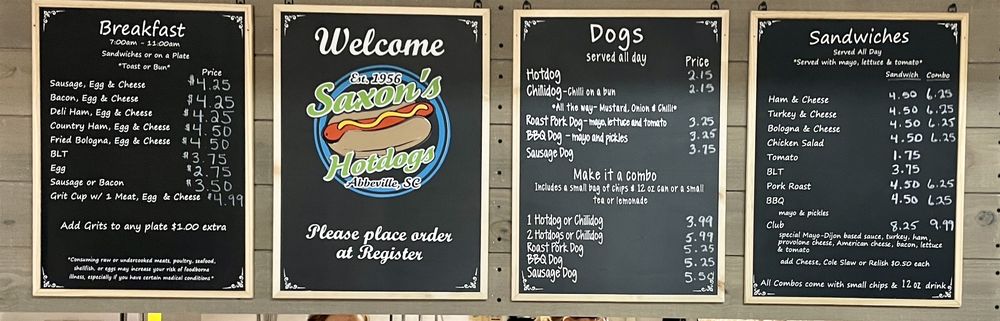 Breakfast
7:00am - 11:00am
Sandwiches or on a Plate
*Toast or Bun*
Price
Sausage, Egg & Cheese $4.25
Bacon, Egg & Cheese $4.25
Deli Ham, Egg & Cheese $4.25
Country Ham, Egg & Cheese $4.50
Fried Bologna, Egg & Cheese $4.50
BLT $3.75
Egg $2.75
Sausage or Bacon $3.50
Grit Cup w/ 1 Meat, Egg & Cheese $4.99
Add Grits to any plate $1.00 extra
*Consuming raw or undercooked meats, poultry, seafood,
shellfish, or eggs may increase your risk of foodborne
illness, especially if you have certain medical conditions*
Welcome
Est. 1956
Saxon's
Hotdogs
Abbeville, SC
Please place order
at Register
Dogs
Served all day
Price
Hotdog 2.15
Chilidog-Chili on a bun 2.15
*All the way- Mustard, Onion & Chili*
Roast Pork Dog-mayo, lettuce and tomato 3.25
BBQ Dog - mayo and pickles 3.25
Sausage Dog 3.75
Make it a combo
Includes a small bag of chips & 12 oz can or a small
tea or lemonade
1 Hotdog or Chilidog 3.99
2 Hotdogs or Chilidog 5.99
Roast Pork Dog 5.25
BBQ Dog 5.25
Sausage Dog 5.50
Sandwiches
Served All Day
*Served with mayo, lettuce & tomato*
Sandwich Combo
Ham & Cheese 4.50 6.25
Turkey & Cheese 4.50 6.25
Bologna & Cheese 4.50 6.25
Chicken Salad 4.50 6.25
Tomato 1.75
BLT 3.75
Pork Roast 4.50 6.25
BBQ 4.50 6.25
mayo & pickles
Club 8.25 9.99
special Mayo-Dijon based sauce, turkey, ham,
provolone cheese, American cheese, bacon, lettuce
& tomato
add Cheese, Cole Slaw or Relish $0.50 each
All Combos come with small chips & 12 oz drink